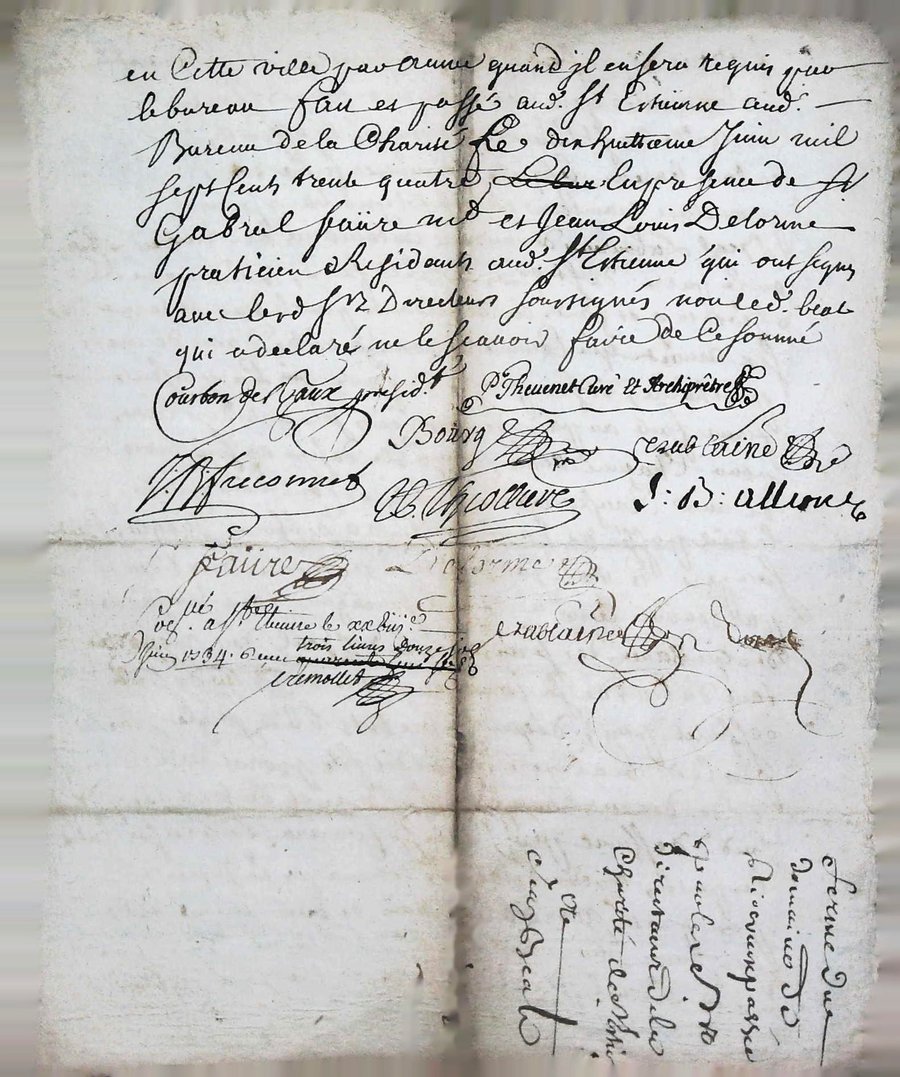 en Cette ville par année quand jl en sera requis par
le bureau fait et passé aud. St Etienne aud.
Bureau de la Charité Le dix huittieme Juin mil
sept Cents trente quatre, En presence de Sr
Gabriel faure md et Jean Louis Delorme
praticien Residents aud. St Etienne qui ont signé
avec lesd Srs Directeurs soussignés non led. beal
qui a declaré ne le scavoir faire de Ce sommé
Courbon des Gaux presidt. Pre Thevenet Curé et Archiprêtre
Bourg ezablaine
Frecomet Thiollière J: B: allione
faure Delorme
A St Etienne le xxbiije
Juin 1734. trois livres douze sols ezablaine
cremollet
ferme du
domaine de
passée
par les Srs
directeurs de la
Charité de St Etie
a
Beal